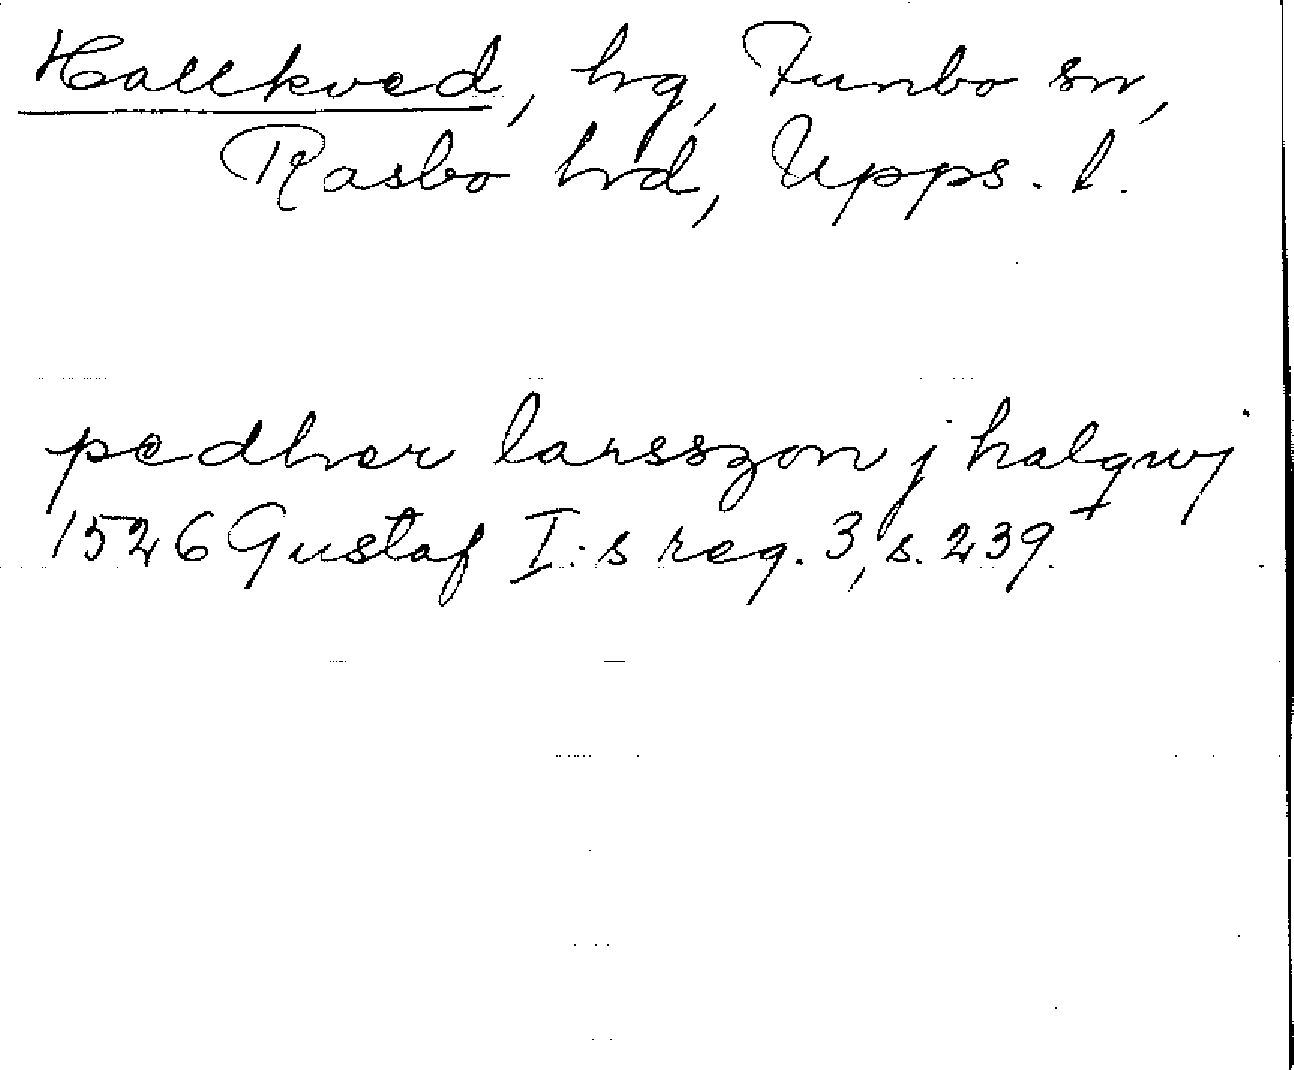 Hallkved, hg, Funbo sn,
Rasbo hrd, Upps. l.
pedher larsszon j halqwj
1526 Gustaf I:s reg. 3, s. 239.